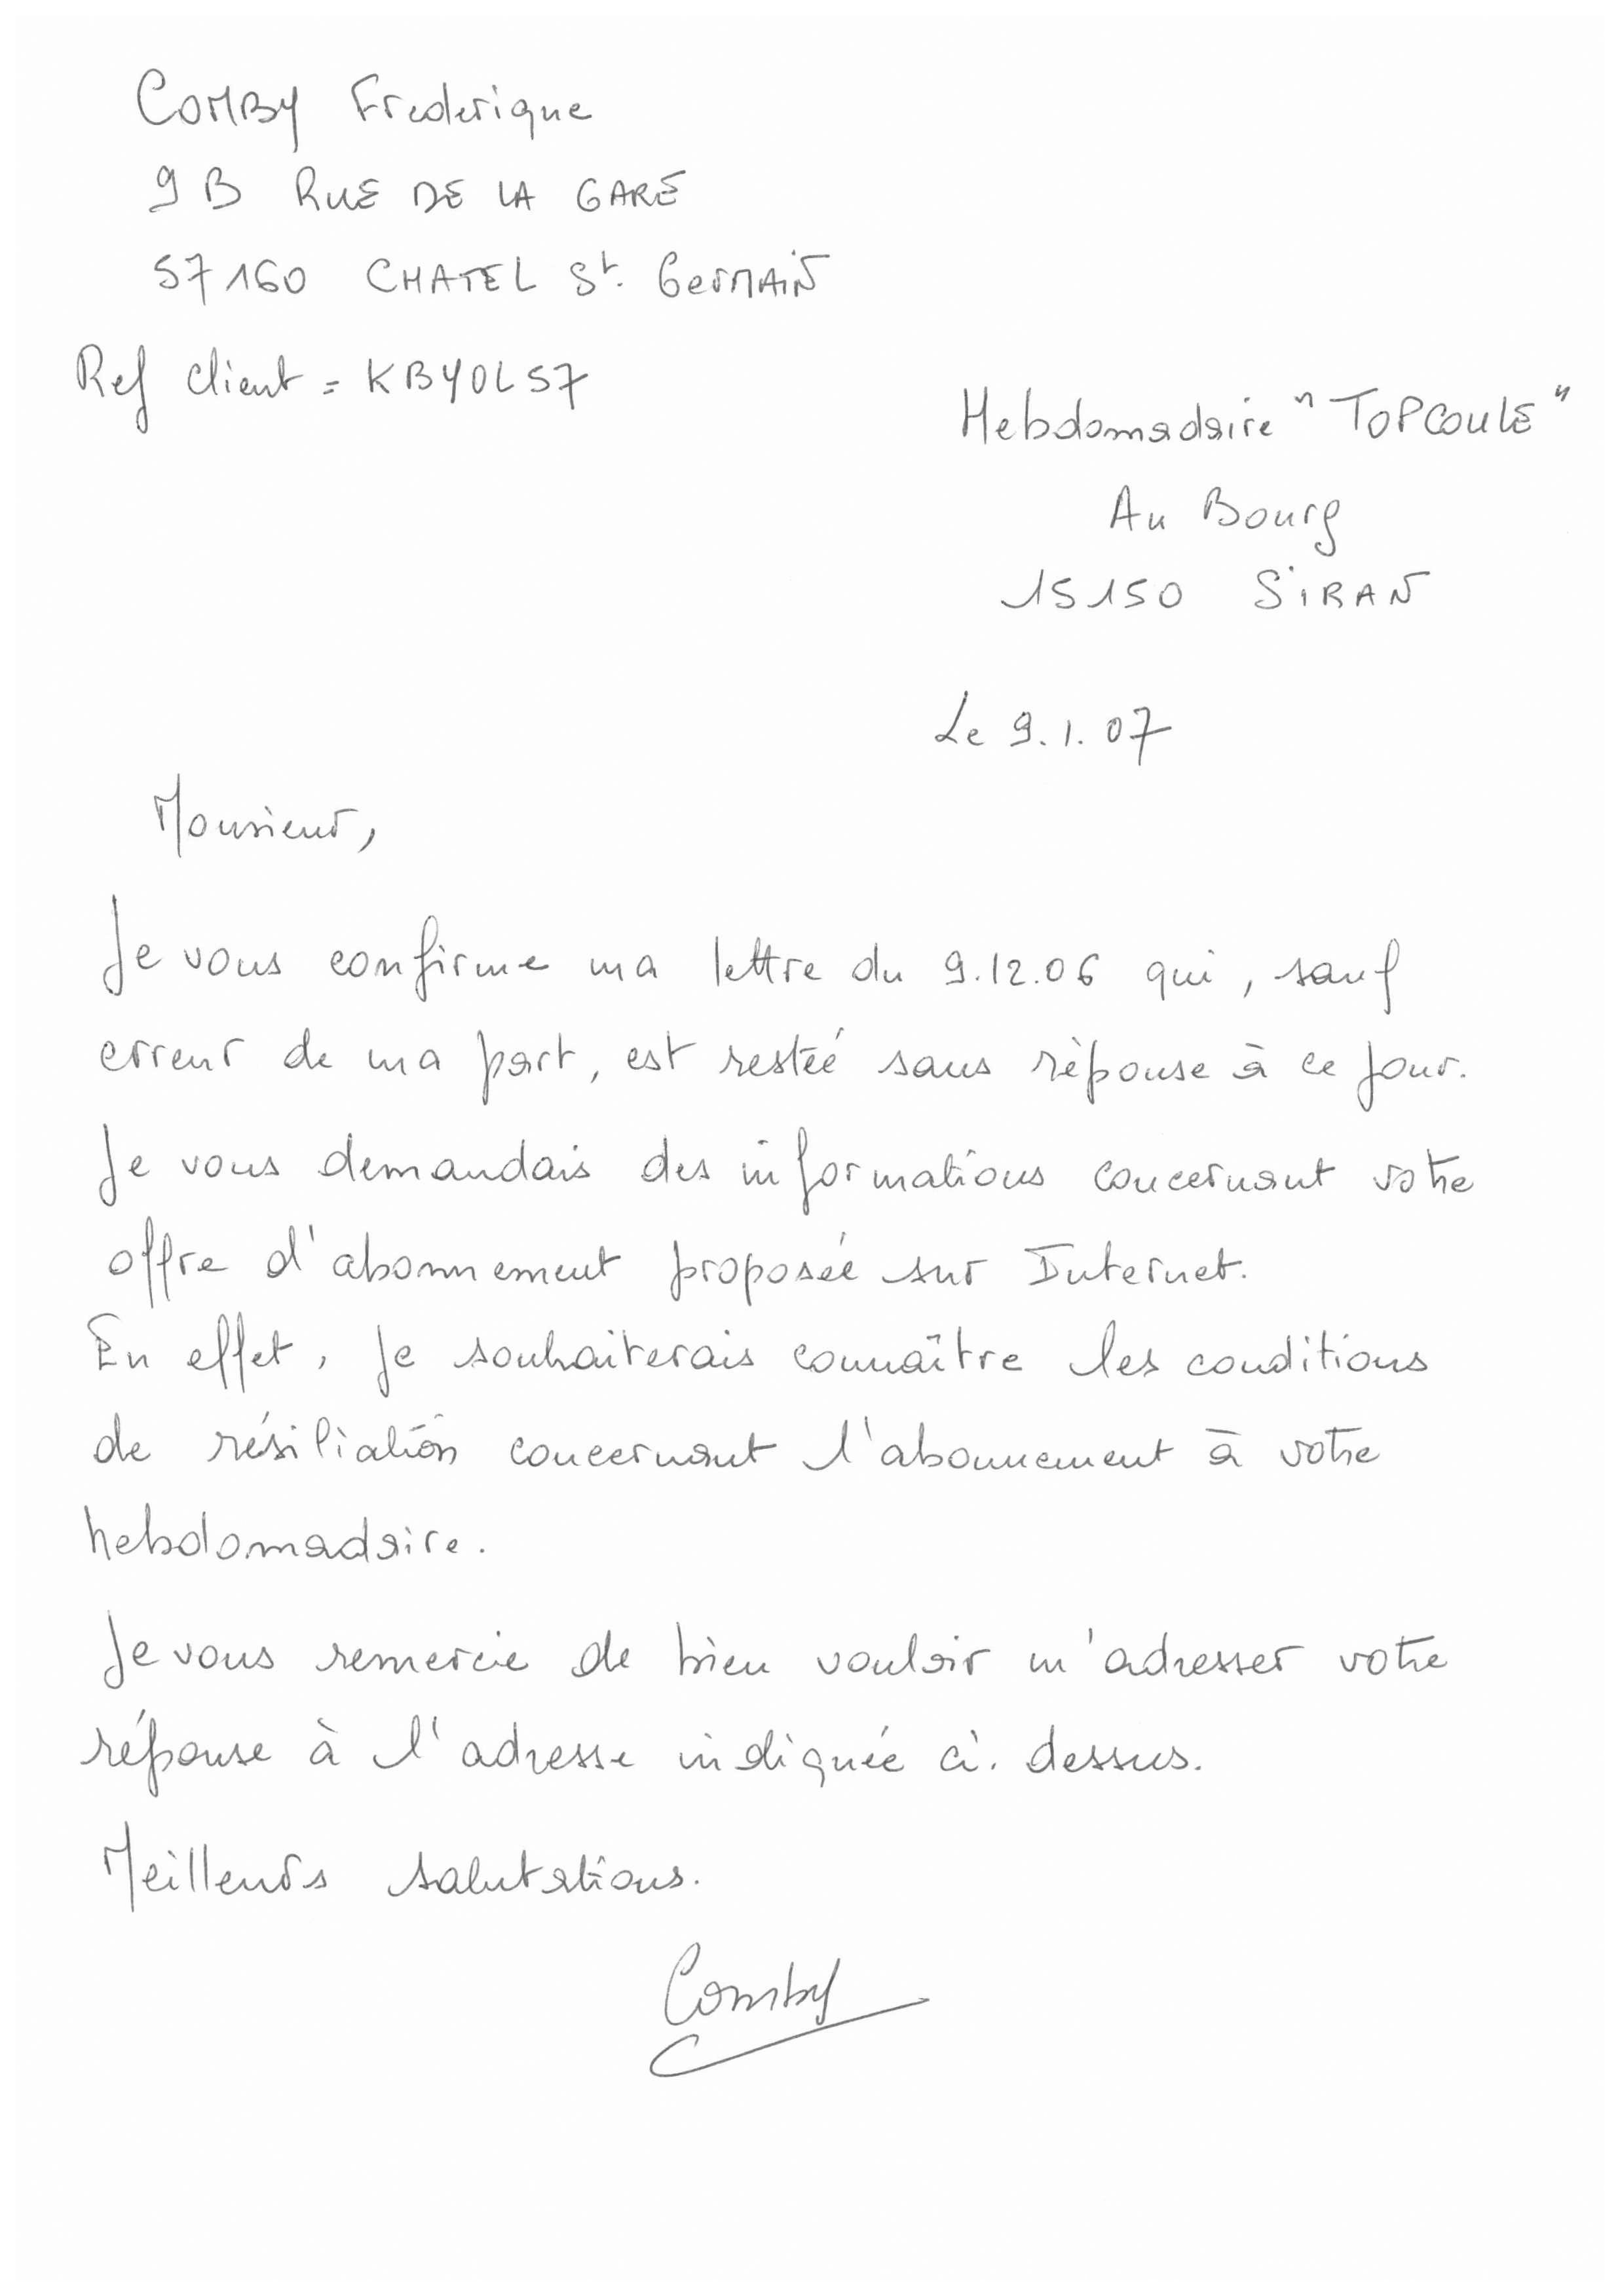 COMBY Frederique
9 B RUE DE LA GARE
57160 CHATEL St. GERMAIN
Ref client = KBYOL57
Hebdomadaire "TOPCOULE"
Au Bourg
15150 SIRAN
Le 9.1.07
Monsieur,
Je vous confirme ma lettre du 9.12.06 qui, sauf
erreur de ma part, est restée sans réponse à ce jour.
Je vous demandais des informations concernant votre
offre d'abonnement proposée sur Internet.
En effet, je souhaiterais connaître les conditions
de résiliation concernant l'abonnement à votre
hebdomadaire.
Je vous remercie de bien vouloir m'adresser votre
réponse à l'adresse indiquée ci-dessus.
Meilleurs salutations.
Comby